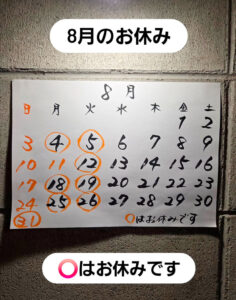 8月のお休み
8月
日 月 火 水 木 金 土
1 2
3 4 5 6 7 8 9
10 11 12 13 14 15 16
17 18 19 20 21 22 23
24 25 26 27 28 29 30
31
○はお休みです
⭕はお休みです